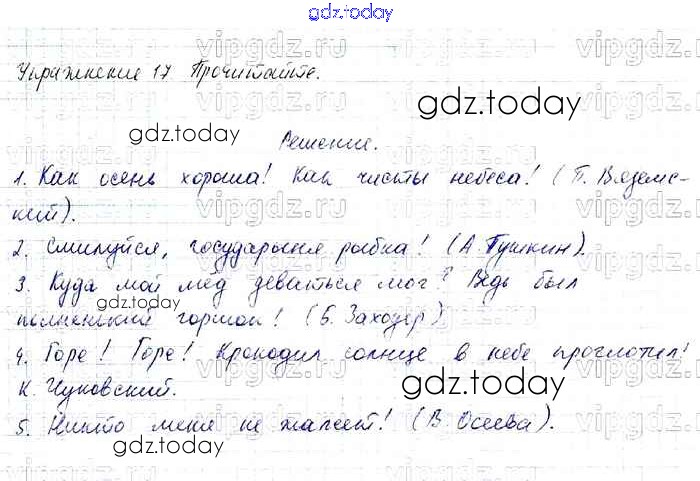 gdz.today
Упражнение 17 Прочитайте.
Решение.
1. Как осень хороша! Как чисты небеса! (П. Вяземс-
кий).
2. Смилуйся, государыня рыбка! (А. Пушкин).
3. Куда мой мёд деваться мог? Ведь был
полненький горшок! (Б. Заходер)
4. Горе! Горе! Крокодил солнце в небе проглотил!
К. Чуковский.
5. Никто меня не жалеет! (В. Осеева).
gdz.today
gdz.today
gdz.today
gdz.today
gdz.today
vipgdz.ru